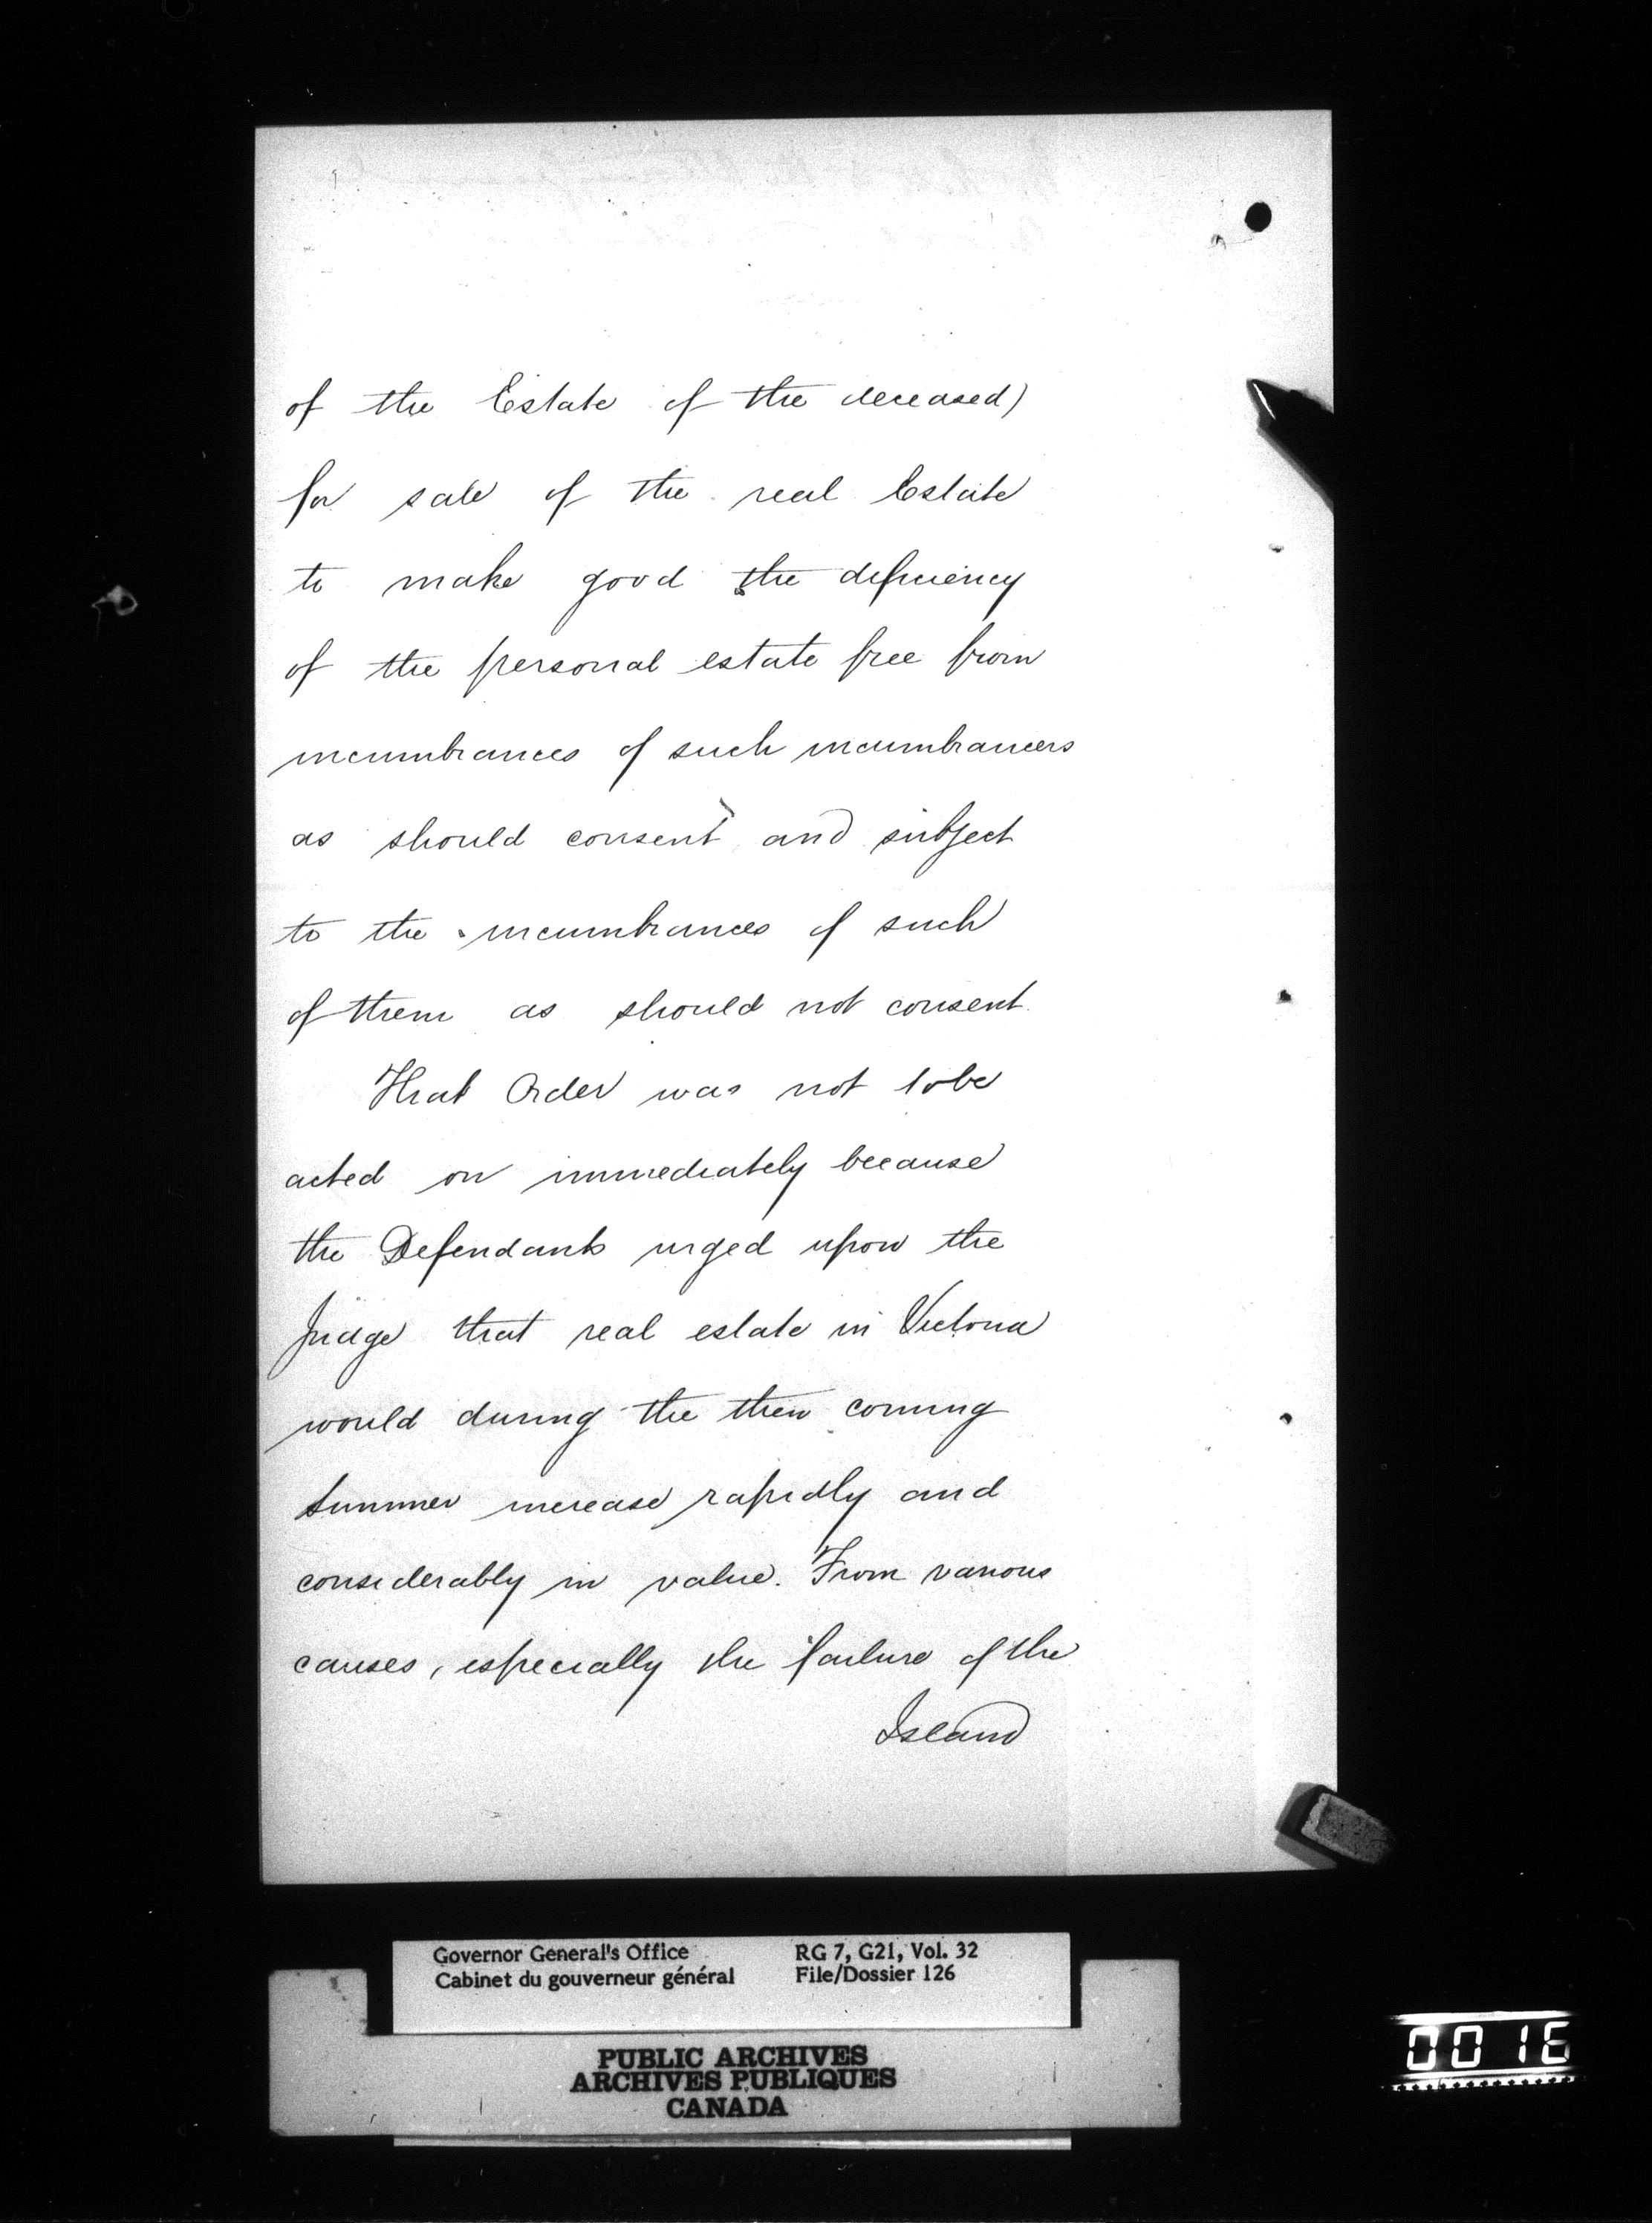 of the Estate of the deceased)
for sale of the real Estate
to make good the deficiency
of the personal estate free from
incumbrances of such incumbrancers
as should consent and subject
to the incumbrances of such
of them as should not consent.
That Order was not to be
acted on immediately because
the Defendants urged upon the
Judge that real estate in Victoria
would during the then coming
Summer increase rapidly and
considerably in value. From various
causes, especially the failure of the
Island
Governor General's Office
Cabinet du gouverneur général
RG 7, G21, Vol. 32
File/Dossier 126
PUBLIC ARCHIVES
ARCHIVES PUBLIQUES
CANADA